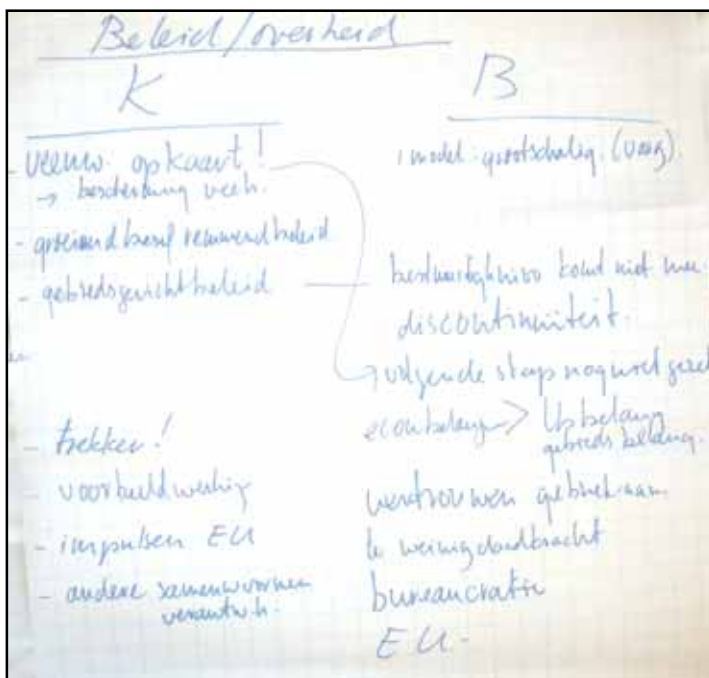 Beleid/overheid
K
- veenw. op kaart!
→ bescherming veeh.
- groeiend besef remmend beleid
- gebiedsgericht beleid
- trekker!
voorbeeldwerking
- impulsen EU
- andere samenwvormen
verantwh.
B
1 model: grootschalig. (voug).
komt niet mee.
discontinuïteit.
→ volgende stap nog niet gezet
econ belangen > belang
gebieds belang.
vertrouwen gebrek aan
te weinig daadkracht
bureaucratie
EU.